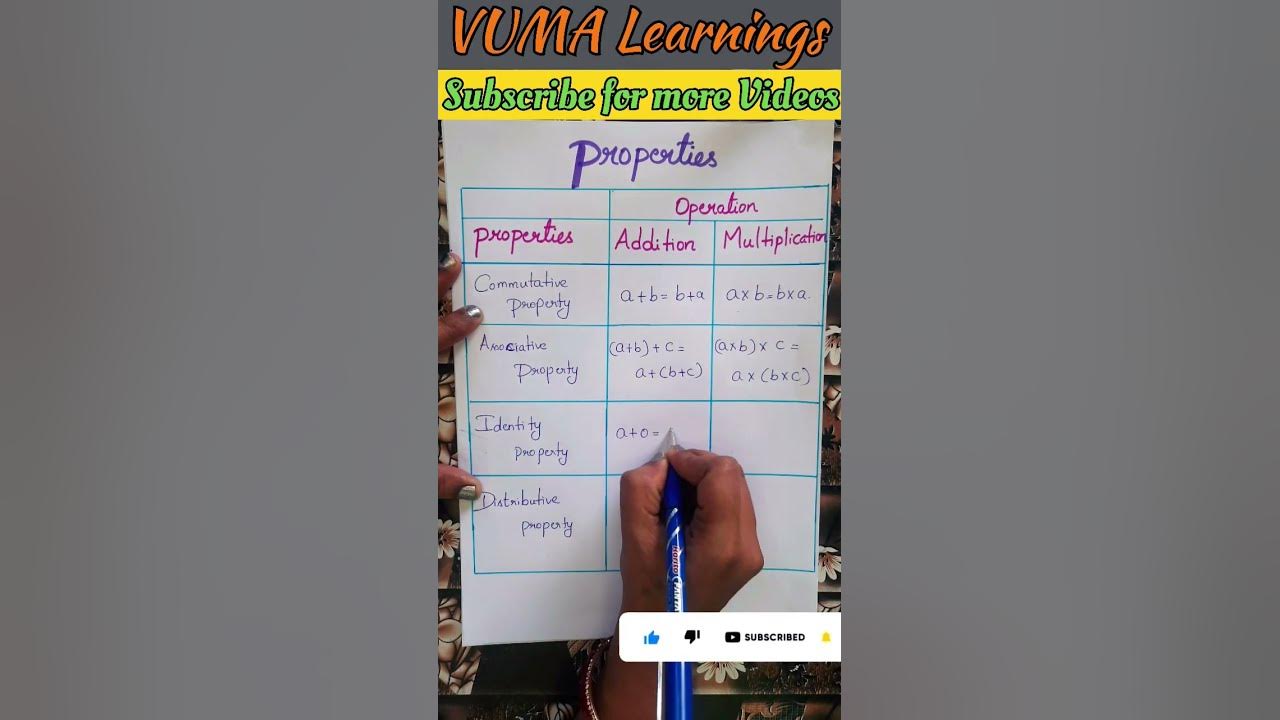 VUMA Learnings
Subscribe for more Videos
Properties
Operation
properties Addition Multiplication
Commutative
property
a+b=b+a
a×b=b×a.
Associative
Property
(a+b)+c=
a+(b+c)
(a×b)×c=
a×(b×c)
Identity
property
a+0=
Distributive
property
SUBSCRIBED